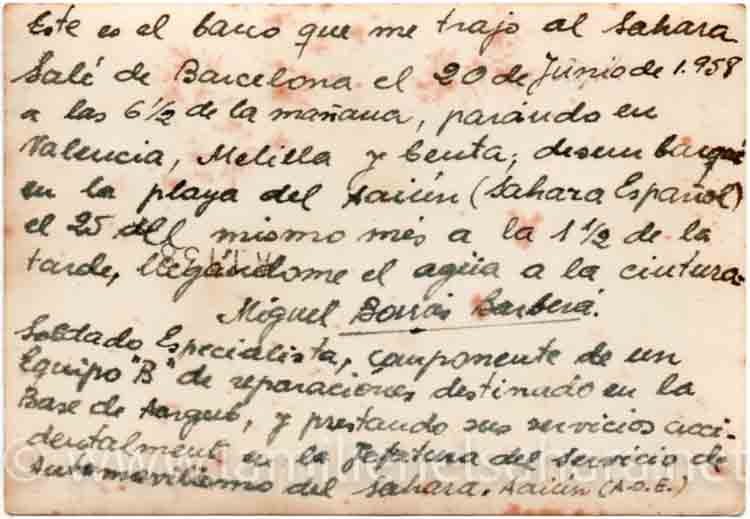 Este es el barco que me trajo al Sahara
Salí de Barcelona el 20 de Junio de 1.958
a las 6 1/2 de la mañana, parándo en
Valencia, Melilla y Ceuta; desembarqué
en la playa del Aaiún (Sahara Español)
el 25 del mismo més a la 1 1/2 de la
tarde, llegándome el agüa a la cintura.
Miguel Borrás Barberá.
Soldado Especialista, componente de un
Equipo "B" de reparaciónes destinado en la
Base de Aargub, y prestando sus servicios acci-
dentalment en la Jefatura del Servicio de
Automovilismo del Sahara. Aaiún (A.O.E.)
© www.lamilienelsahara.net